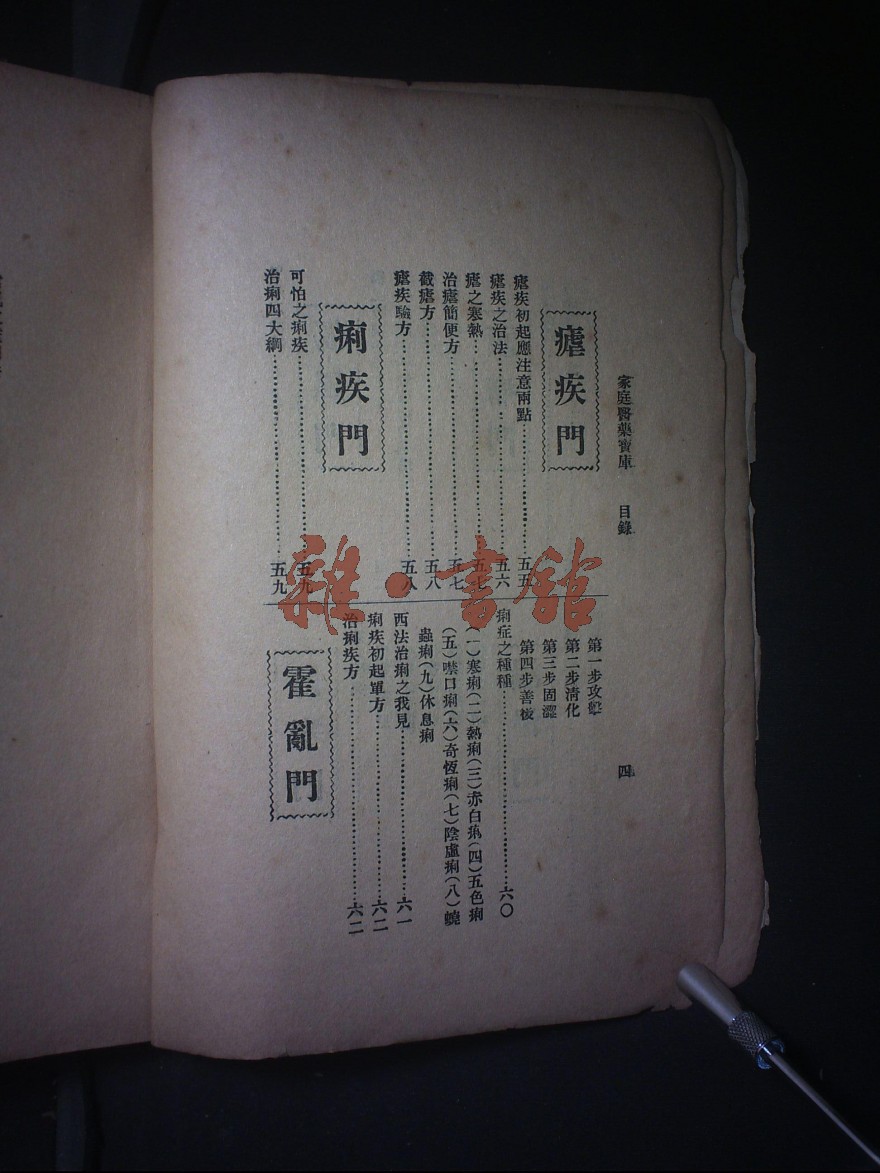 家庭醫藥寶庫 目錄 四
瘧疾門
瘧疾初起應注意兩點……五五
瘧疾之治法……五六
瘧之寒熱……五七
治瘧簡便方……五七
截瘧方……五八
瘧疾驗方……五八
痢疾門
可怕之痢疾……五九
治痢四大綱……五九
第一步攻擊
第二步清化
第三步固澀
第四步善後
痢症之種種……六〇
(一)寒痢(二)熱痢(三)赤白痢(四)五色痢
(五)噤口痢(六)奇恆痢(七)陰虛痢(八)蟯
蟲痢(九)休息痢
西法治痢之我見……六一
痢疾初起單方……六二
治痢疾方……六二
霍亂門
雜·書館